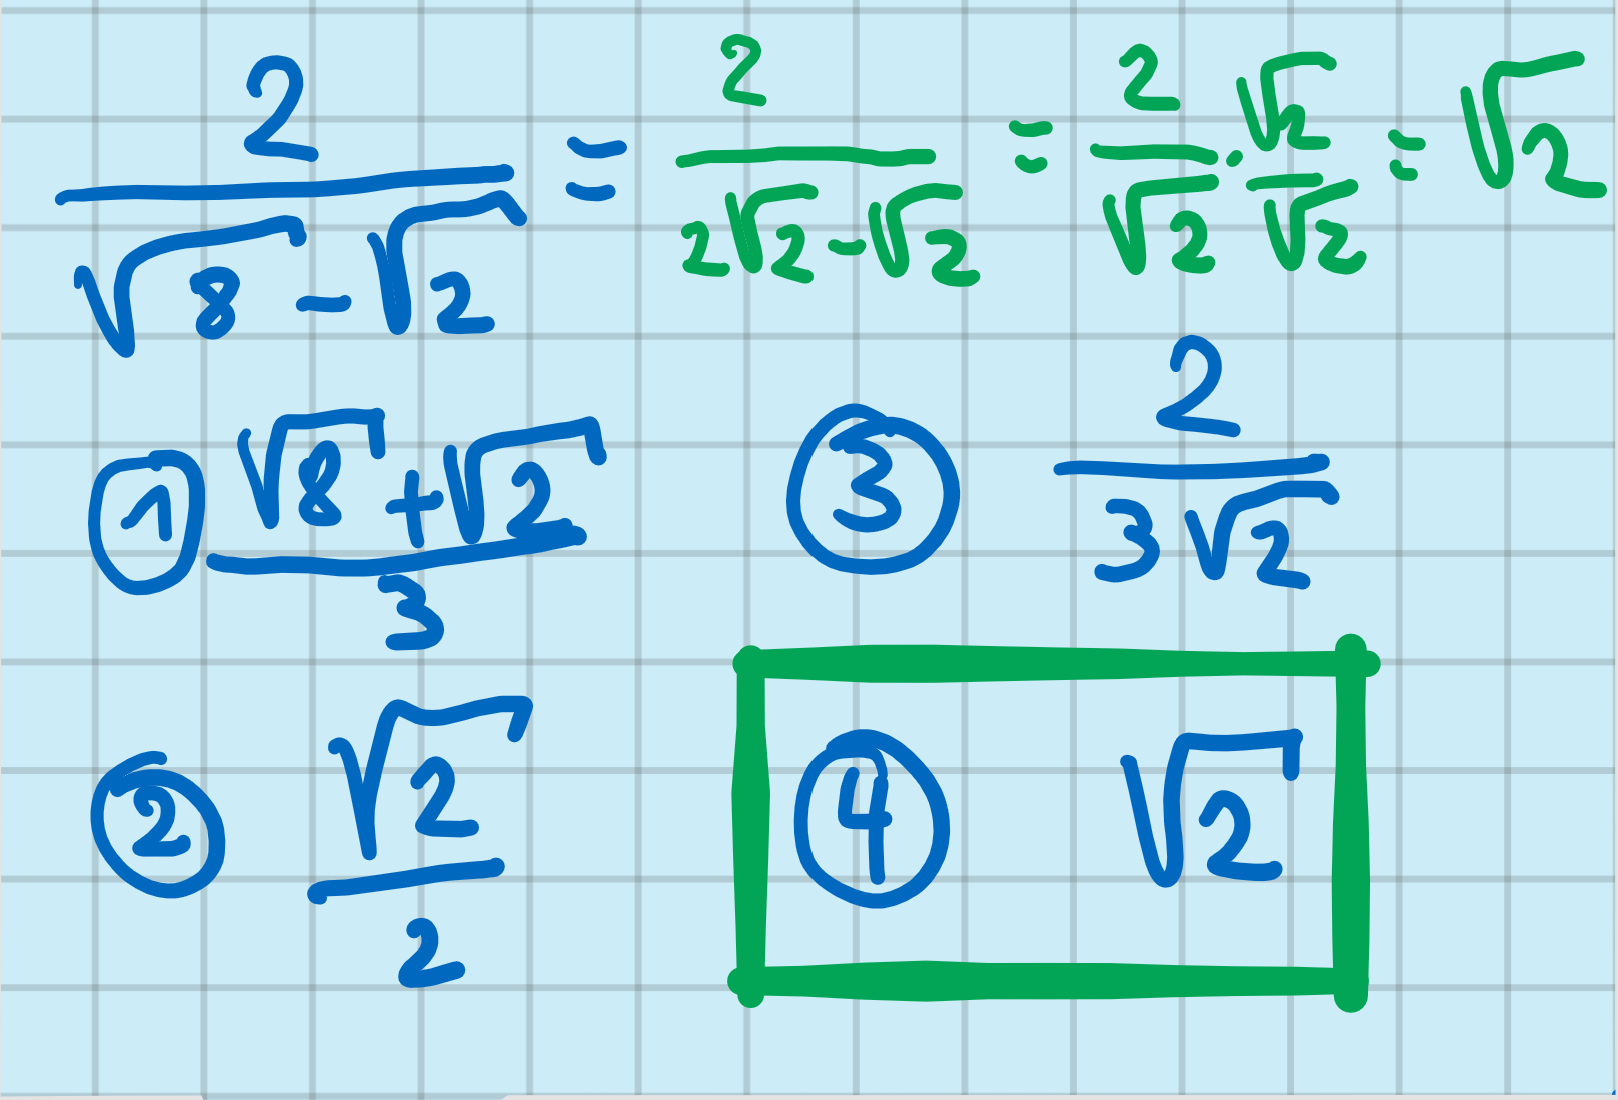 2/(√8 - √2) = 2/(2√2 - √2) = 2/√2 · √2/√2 = √2
① (√8 + √2)/3
③ 2/(3√2)
② √2/2
④ √2